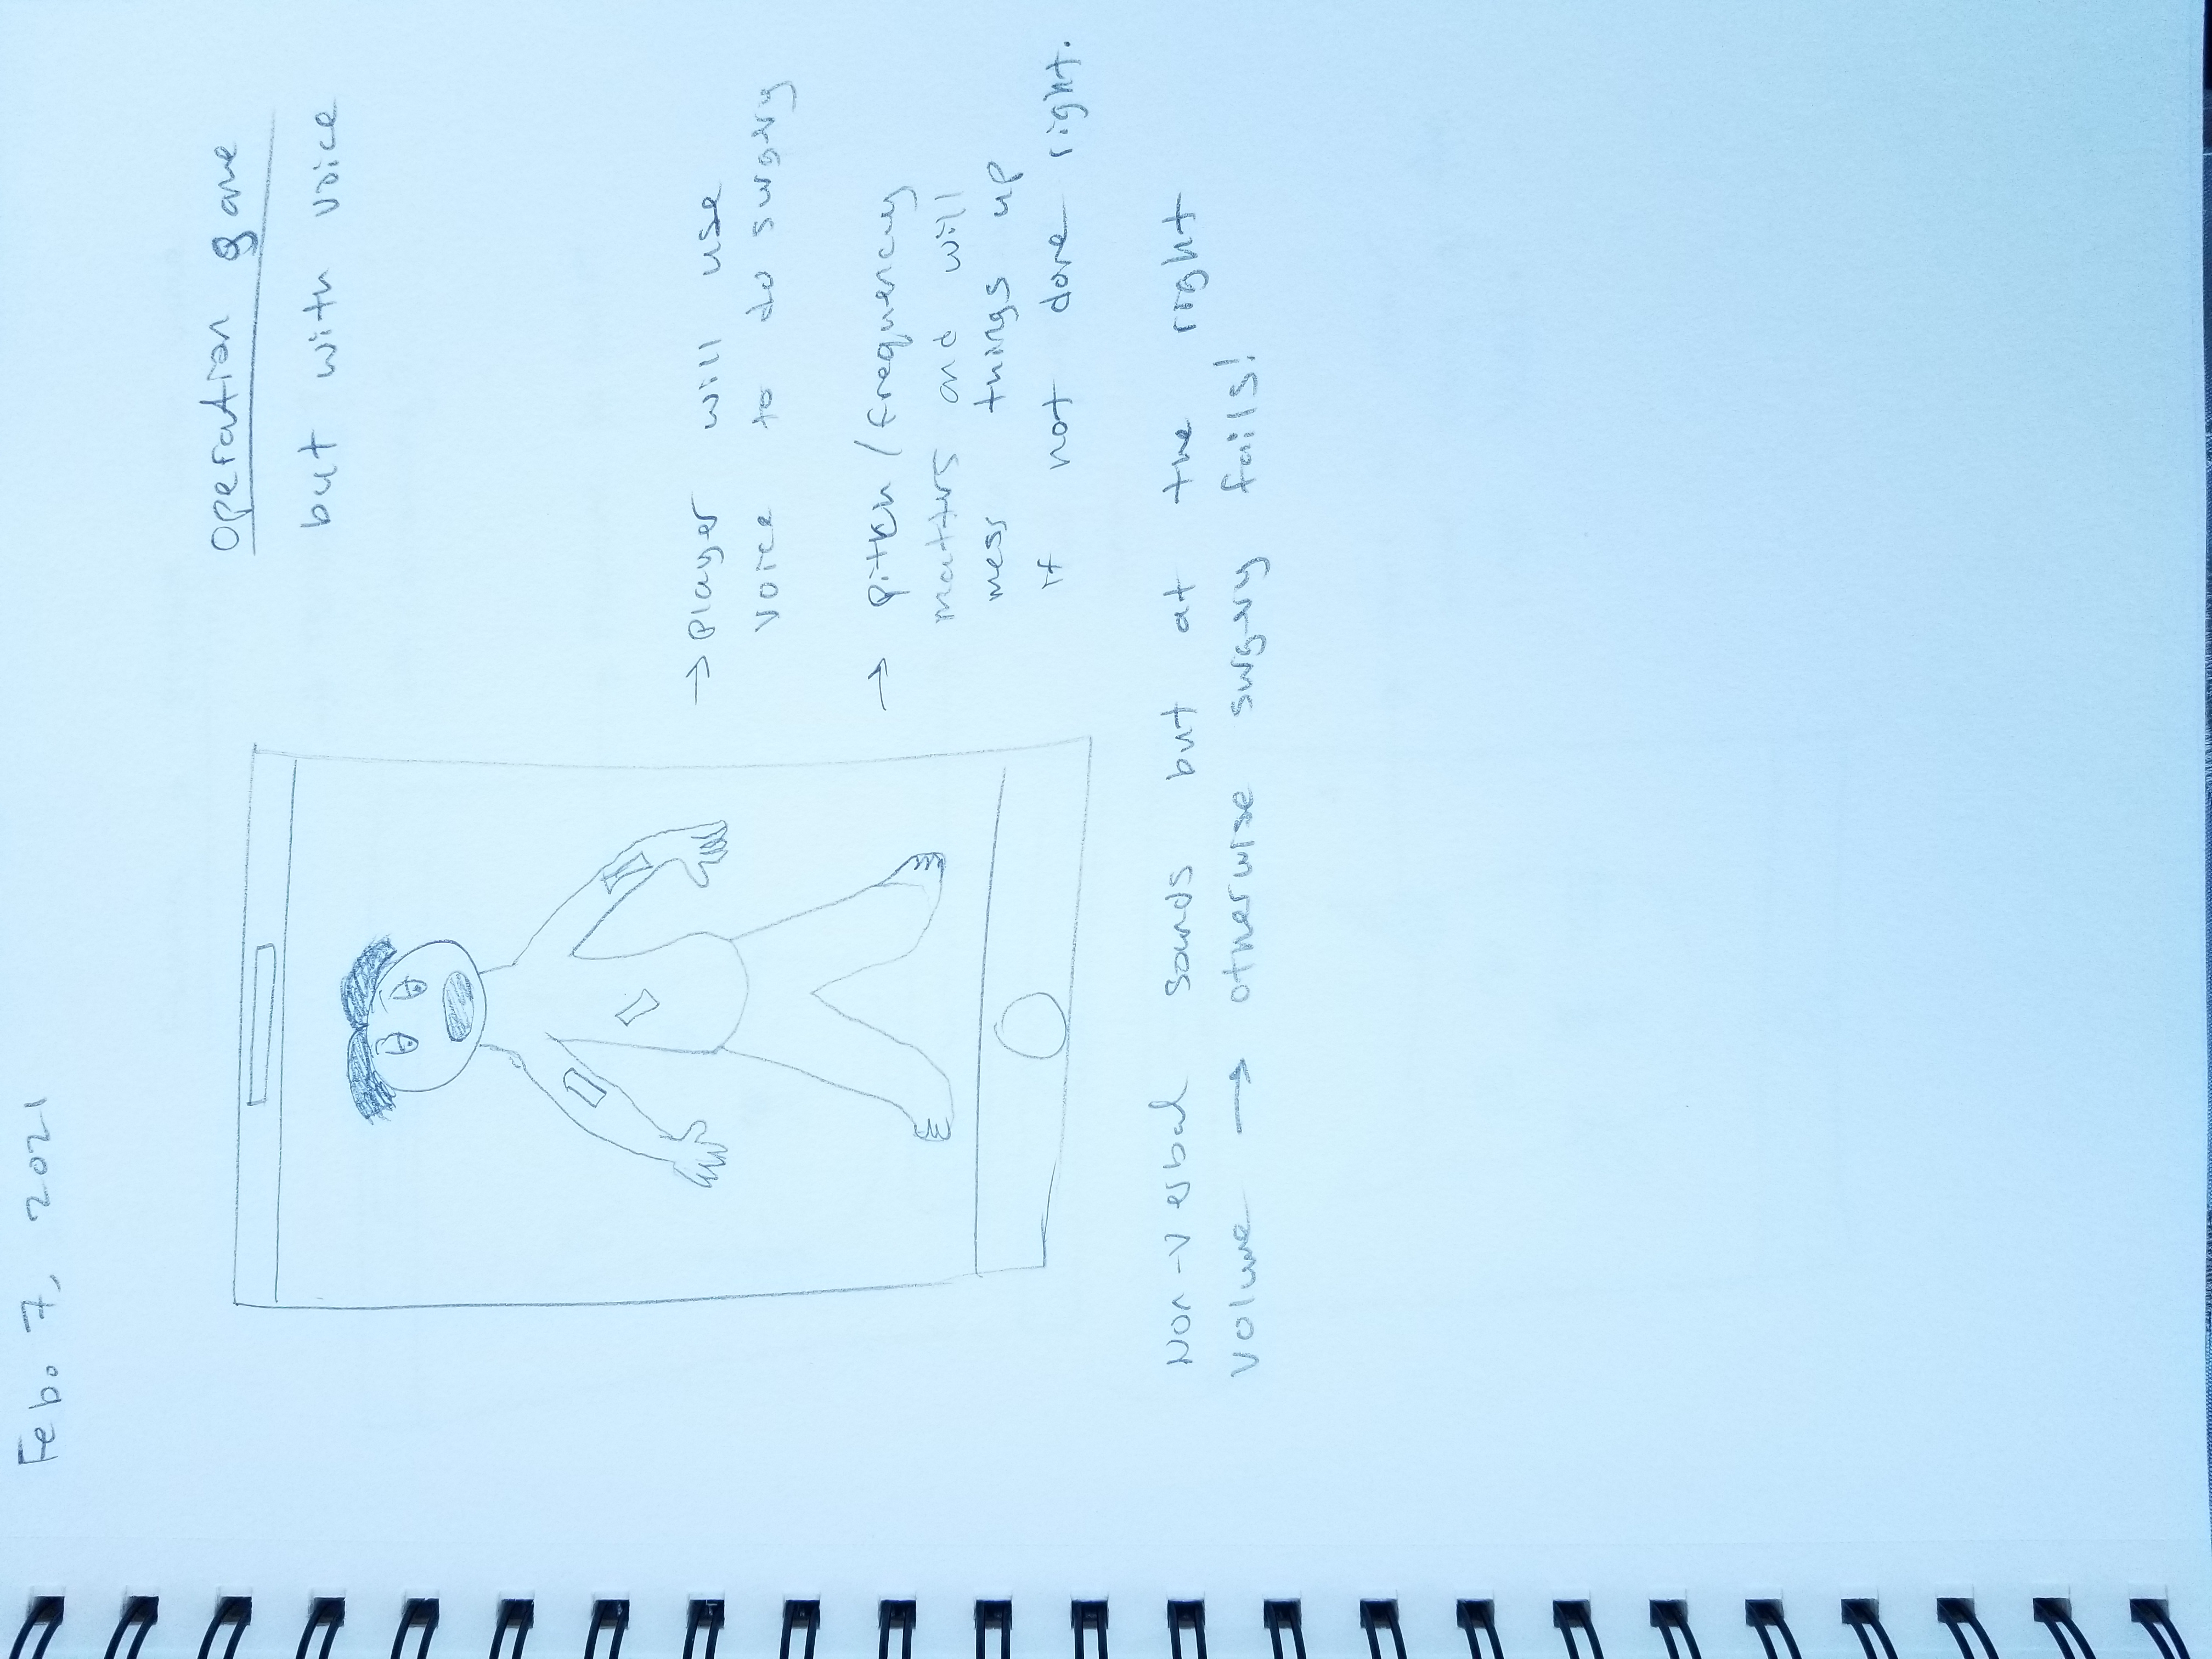 Feb. 7, 2021
operation game
but with voice
→ player will use
voice to do surgery
→ pitch / frequency
matters and will
mess things up
if not done right.
Non-verbal sounds but at the right
volume → otherwise surgery fails!